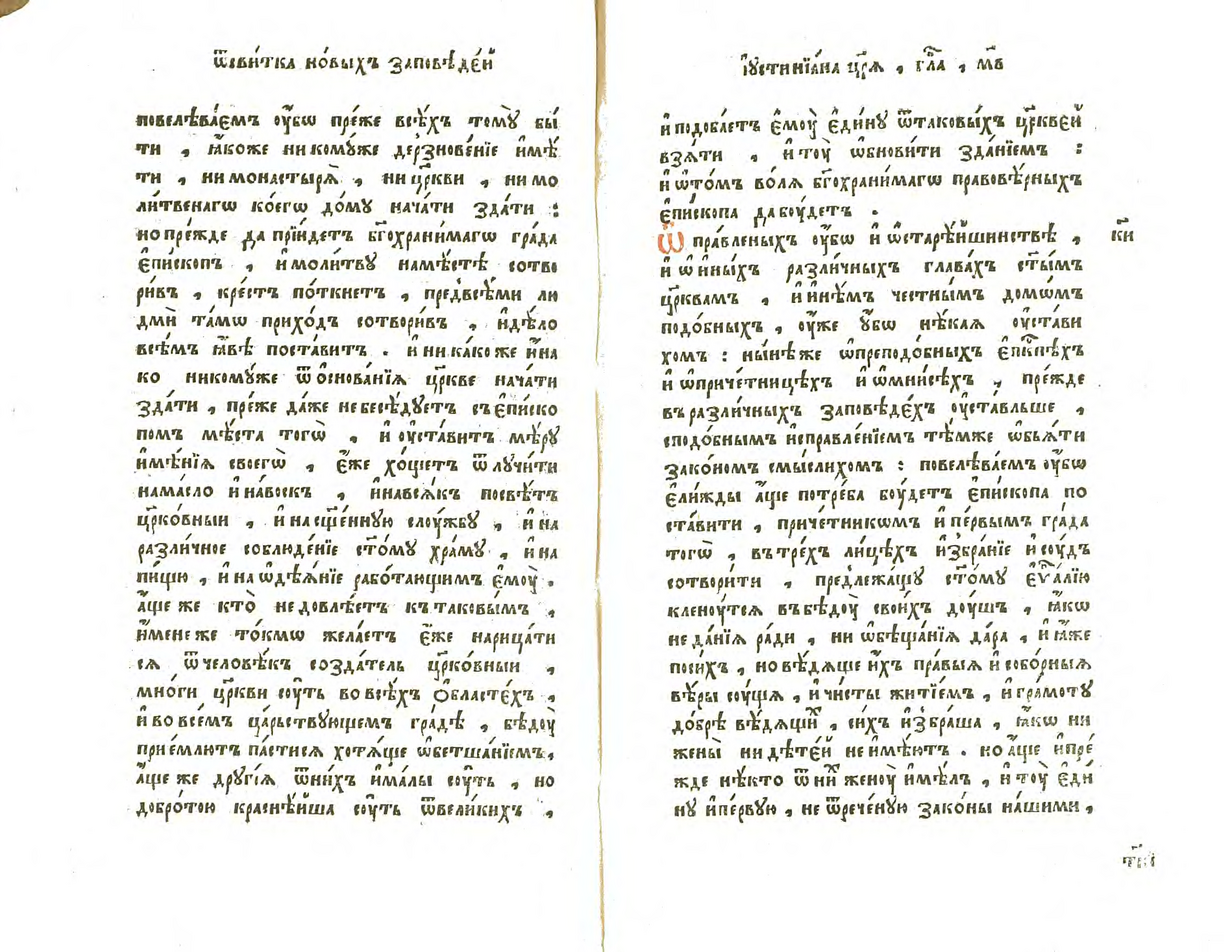 ѿсви́тка но́выхъ заповѣде́й
повелѣва́емъ ᲂу҆́бѡ пре́же всѣ́хъ томꙋ̀ бы́
ти , ꙗ҆́коже никомꙋ́же дерзнове́нїе и҆мѣ́
ти , ни монастырѧ̀ , ни цр҃кви , ни мо
ли́твенагѡ ко́егѡ до́мꙋ нача́ти зда́ти :
но пре́жде да прїи́детъ бг҃охрани́магѡ гра́да
є҆пи́скопъ , и҆ моли́твꙋ на мѣ́стѣ сотво
ри́въ , кре́стъ по́ткнетъ , предвсѣ́ми лю
дмѝ та́мѡ прихо́дъ сотвори́въ , и҆ дѣ́ло
всѣ́мъ ꙗ҆́вѣ поста́витъ . и҆ ника́коже и҆́на
ко никомꙋ́же ѿ ѻ҆снова́нїѧ цр҃кве нача́ти
зда́ти , пре́же да́же не бесѣ́дꙋетъ съ є҆пи́ско
помъ мѣ́ста тогѡ̀ , и҆ ᲂу҆ста́витъ мѣ́рꙋ
и҆мѣ́нїѧ своегѡ̀ , є҆́же хо́щетъ ѿлꙋчи́ти
на ма́сло и҆ на́воскъ , и҆ на всѧ́къ посвѣ́тъ
цр҃ко́вныи , и҆ на сщ҃е́ннꙋю слоу́жбꙋ , и҆ на
разли́чное соблюде́нїе ст҃о́мꙋ хра́мꙋ , и҆ на
пи́щю , и҆ на ѡ҆дѣѧ́нїе рабо́тающимъ є҆моу̀ .
а҆́ще же кто̀ не довлѣ́етъ къ таковы́мъ ,
и҆́мене же то́кмѡ жела́етъ є҆́же нарица́ти
сѧ ѿ человѣ́къ созда́тель цр҃ко́вныи ,
мно́ги цр҃кви соу́ть во всѣ́хъ ѻ҆́бластехъ ,
и҆ во все́мъ ца́рьствꙋющемъ гра́дѣ , бѣдоу̀
прие́млютъ па́стисѧ хотѧ́ще ѡ҆бетша́нїемъ,
а҆́ще же дрꙋгі́ѧ ѿни́хъ и҆ ма́лы соу́ть , но
добро́тою краснѣ́йша соу́ть ѿвели́кихъ ,
і҆ꙋстинїа́на цр҃ѧ , гла҃ , мв҃
и҆ подоба́етъ є҆моу̀ є҆ди́нꙋ ѿтаковы́хъ цр҃кве́й
взѧ́ти , и҆ тоу̀ ѡ҆бнови́ти зда́нїемъ :
и҆ ѡ҆то́мъ во́лѧ бг҃охрани́магѡ правовѣ́рныхъ
є҆пи́скопа да боу́детъ .
Ѡ҆ пра́вленыхъ ᲂу҆́бѡ и҆ ѡ҆старѣ́йшинствѣ , к҃и
и҆ ѡ҆ и҆ны́хъ разли́чныхъ глава́хъ ст҃ы́мъ
цр҃квамъ , и҆ и҆нѣ́мъ че́стнымъ домѡ́мъ
подо́бныхъ , ᲂу҆же ᲂу҆́бѡ нѣ́каѧ ᲂу҆ста́ви
хомъ : ны́нѣ же ѡ҆преподо́бныхъ є҆пⷭ҇кпѣхъ
и҆ ѡ҆приче́тницѣхъ и҆ ѡ҆мни́сѣхъ , пре́жде
въ разли́чныхъ за́повѣдехъ ᲂу҆ста́вльше ,
сподо́бнымъ и҆справле́нїемъ тѣ́мже ѡ҆бьѧ́ти
зако́номъ смы́слихомъ : повелѣва́емъ ᲂу҆́бѡ
є҆ли́жды а҆́ще потре́ба боу́детъ є҆пи́скопа по
ста́вити , приче́тникѡмъ и҆ пе́рвымъ гра́да
тогѡ̀ , въ тре́хъ ли́цѣхъ и҆збра́нїе и҆ соу́дъ
сотвори́ти , предлежа́щꙋ ст҃о́мꙋ є҆ѵⷢ҇а́лїю
кленоу́тсѧ въ бѣдоу̀ свои́хъ доу́шъ , ꙗ҆́кѡ
не да́нїѧ ра́ди , ни ѡ҆бѣща́нїѧ да́ра , и҆ ꙗ҆́же
поси́хъ , но вѣ́дѧще и҆́хъ пра́выѧ и҆ собо́рныѧ
вѣ́ры соу́щїѧ , и҆ чи́сты житїе́мъ , и҆ гра́мотꙋ
до́брѣ вѣ́дѧщи́хъ , си́хъ и҆збра́ша , ꙗ҆́кѡ ни
жены̀ ни дѣте́й не и҆мѣ́ютъ . но а҆́ще и҆ пре́
жде нѣ́кто ѿ ни́хъ женоу̀ и҆мѣ́лъ , и҆ тоу̀ є҆ди́
нꙋ и҆ пе́рвꙋю , не ѿрече́нꙋю зако́ны на́шими ,